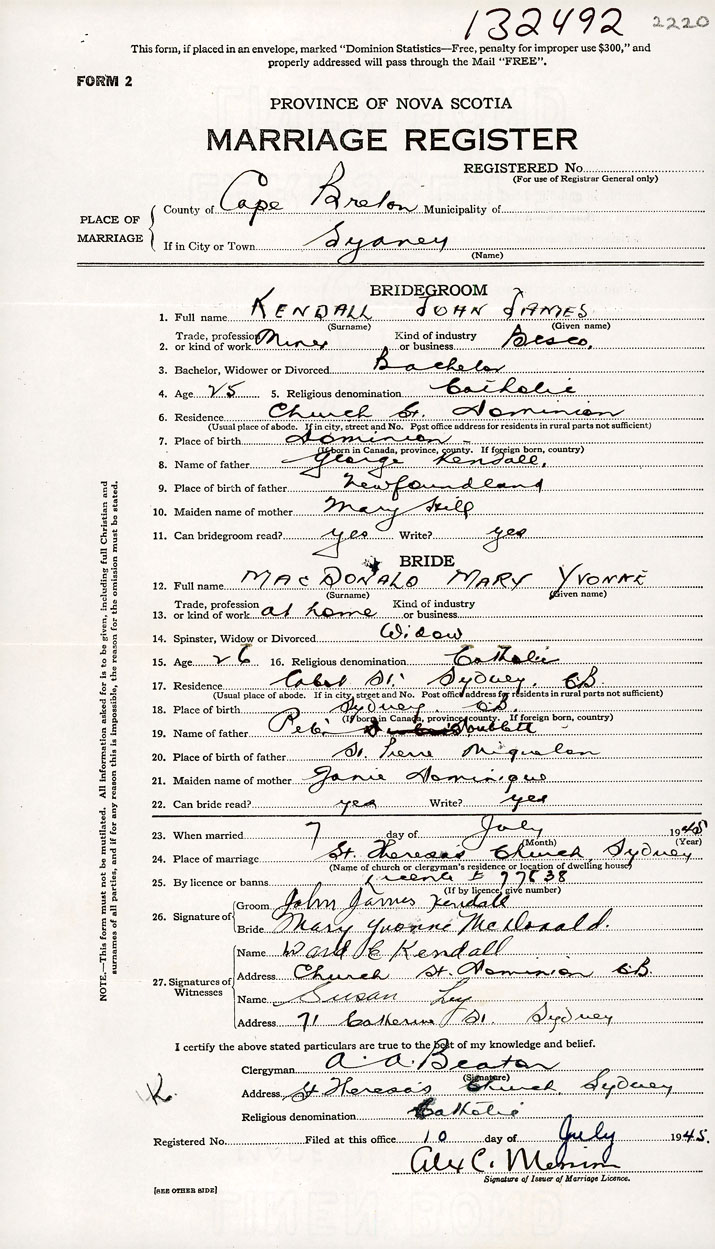 132492 2220
This form, if placed in an envelope, marked "Dominion Statistics—Free, penalty for improper use $300," and
properly addressed will pass through the Mail "FREE".
FORM 2
PROVINCE OF NOVA SCOTIA
MARRIAGE REGISTER
REGISTERED No.
(For use of Registrar General only)
PLACE OF MARRIAGE
County of Cape Breton Municipality of
If in City or Town Sydney
(Name)
BRIDEGROOM
1. Full name KENDALL JOHN JAMES
(Surname) (Given name)
2. Trade, profession or kind of work Miner Kind of industry or business Besco.
3. Bachelor, Widower or Divorced Bachelor
4. Age 25 5. Religious denomination Catholic
6. Residence Church St. Dominion
(Usual place of abode. If in city, street and No. Post office address for residents in rural parts not sufficient)
7. Place of birth Dominion
(If born in Canada, province, county. If foreign born, country)
8. Name of father George Kendall,
9. Place of birth of father Newfoundland
10. Maiden name of mother Mary Hill
11. Can bridegroom read? yes Write? yes
BRIDE
12. Full name MACDONALD MARY YVONNE
(Surname) (Given name)
13. Trade, profession or kind of work at home Kind of industry or business
14. Spinster, Widow or Divorced Widow
15. Age 26 16. Religious denomination Catholic
17. Residence Cabot St. Sydney. CB
(Usual place of abode. If in city, street and No. Post office address for residents in rural parts not sufficient)
18. Place of birth Sydney. CB.
(If born in Canada, province, county. If foreign born, country)
19. Name of father Peter
20. Place of birth of father St Pierre Miquelon
21. Maiden name of mother Janie Dominique
22. Can bride read? yes Write? yes
23. When married 7 day of July 1945
(Month) (Year)
24. Place of marriage St. Theresa's Church, Sydney
(Name of church or clergyman's residence or location of dwelling house)
25. By licence or banns Licence # 97638
(If by licence, give number)
26. Signature of
Groom John James Kendall
Bride Mary Yvonne McDonald.
27. Signatures of Witnesses
Name E Kendall
Address Church St. Dominion CB.
Name Susan
Address 71 Catherine St. Sydney
I certify the above stated particulars are true to the best of my knowledge and belief.
Clergyman A. A. Beaton
(Signature)
Address St Theresa's Church Sydney
Religious denomination Catholic
Registered No. Filed at this office 10 day of July 1945.
Alex C.
Signature of Issuer of Marriage Licence.
[SEE OTHER SIDE]
NOTE.—This form must not be mutilated. All information asked for is to be given, including full Christian and
surnames of all parties, and if for any reason this is impossible, the reason for the omission must be stated.